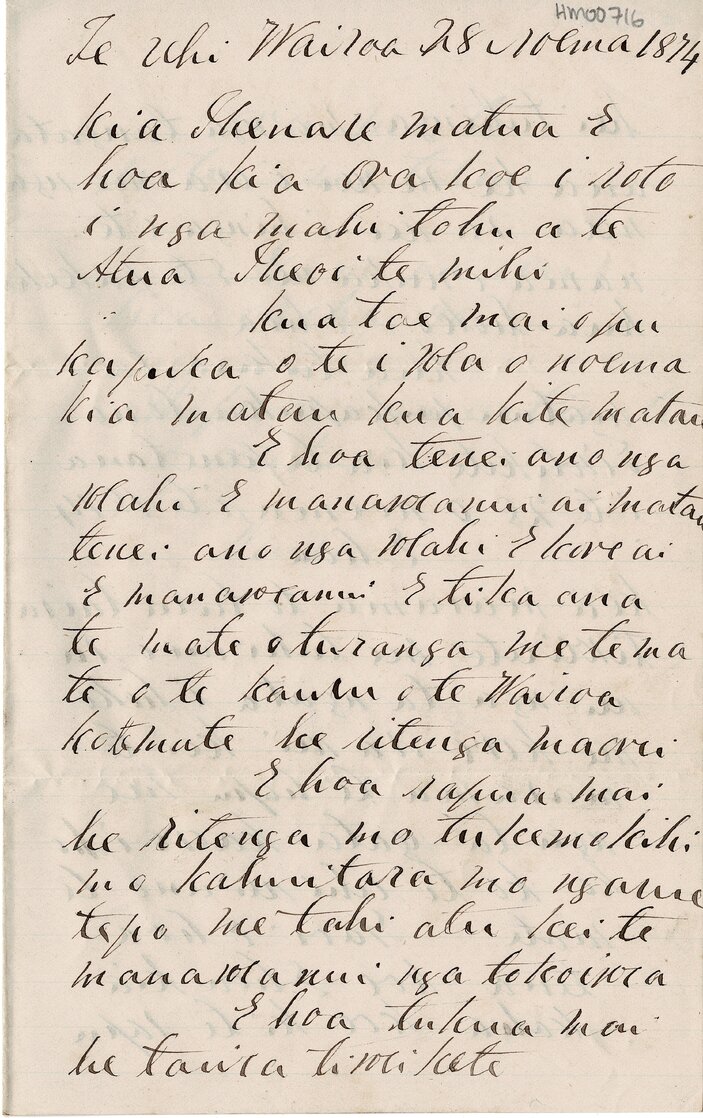 HM00716
Te Uhi Wairoa 28 Noema 1874
Kia Ihenare matua E
hoa kia ora koe i roto
i nga mahi tohu a te
Atua Iheoi te mihi
kua tae mai o pu
kapuka o te i wla o noema
kia matau kua kite matau
E hoa tenei ano nga
wlahi E manawanui ai matau
tenei ano nga wlahi E kore ai
E manawanui E tika ana
te mate o turanga me te ma
te o te kawu o te Wairoa
ko te mate he ritenga maori
E hoa rapua mai
he ritenga mo tukemokihi
mo kahuitara mo ngame
tepo me tahi atu kei te
manawanui nga tokoiwa
E hoa tukua mai
he tauira